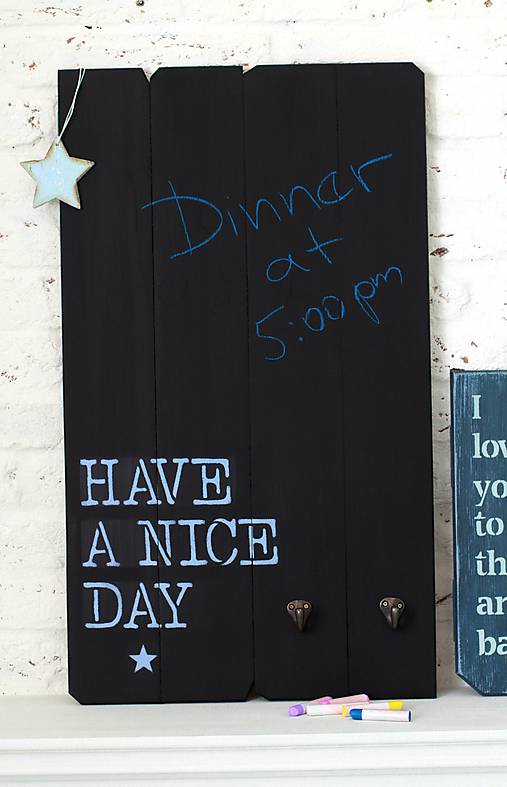 Dinner
at
5:00 pm
HAVE
A NICE
DAY
I
lov
yo
to
th
ar
ba